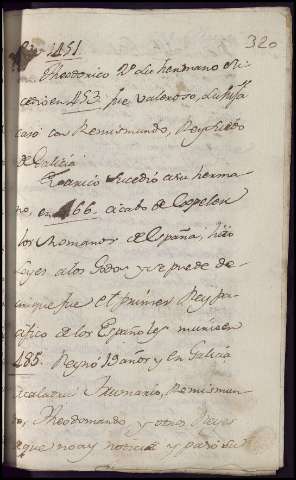 320
451.
Theodorico 2º su hermano su
cedió en 453. fue valeroso, su hija
casó con Remismundo, Rey Suebo
de Galicia
Eurico sucedió a su herma
no, en 466. acabó de expeler
los Romanos de España, hizo
Leyes a los Godos y se puede de-
cir que fue el primer Rey pa-
cifico de los Españoles murió en
485. Reynó 19 años y en Galicia
Remismun-
do, Theodomundo y otros Reyes
que no ay noticia y paró su